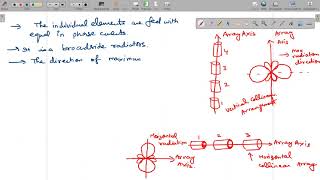 → The individual elements are feed with
equal in phase currents.
→ It is a broadside radiators.
→ The direction of maximum
Array Axis
4
3
2
1
Vertical Collinear
Arrangement
Array
Axis
→ max
radiation
direction
Horizontal
radiation
Array
Axis
1 2 3
Array Axis
Horizontal
collinear Array